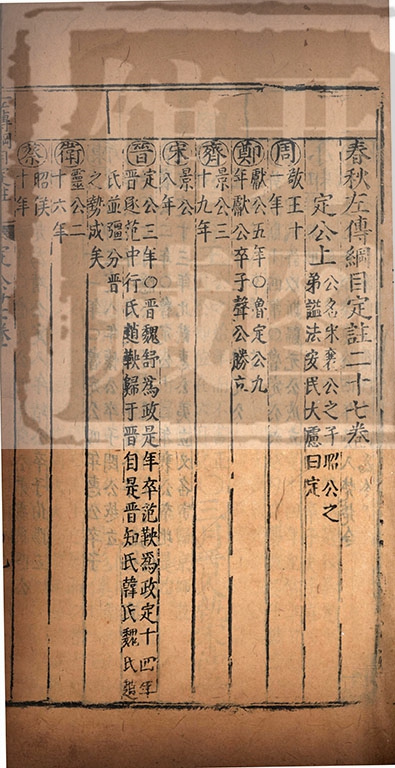 春秋左傳綱目定註二十七卷
定公上 公名宋襄公之子昭公之
弟諡法安民大慮曰定
周 敬王十
一年
鄭 獻公五年○魯定公九
年獻公卒子聲公勝立
齊 景公三
十九年
宋 景公
八年
晉 定公三年○晉魏舒爲政是年卒范鞅爲政定十四年
晉逐范中行氏趙鞅歸于晉自是晉知氏韓氏魏氏趙
氏並彊分晉
之勢成矣
衛 靈公二
十六年
蔡 昭侯
十年